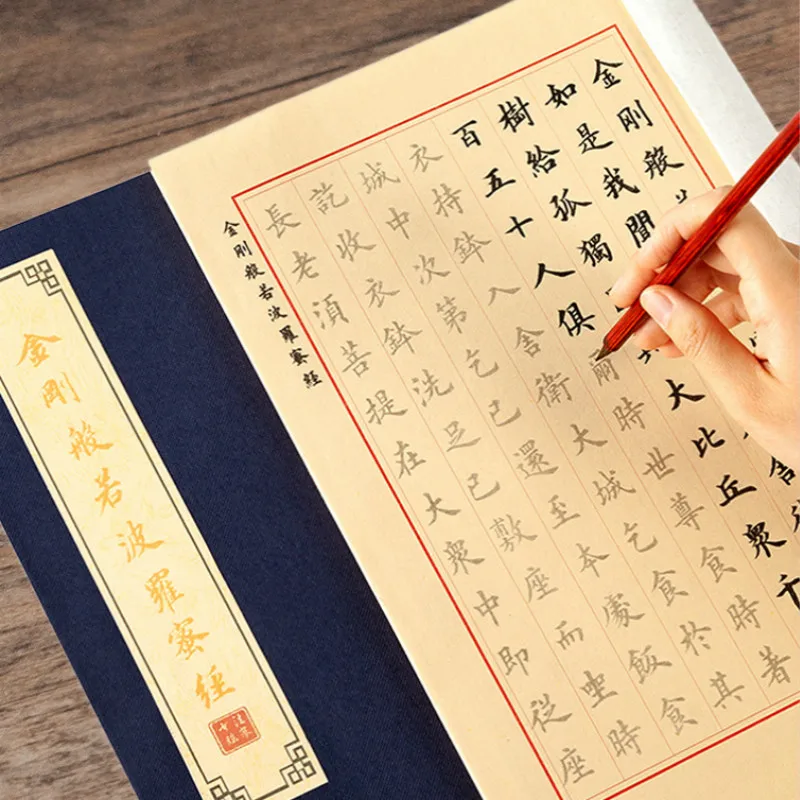 金剛般
如是我聞舍
樹給孤獨大比丘衆千
百五十人俱爾時世尊食時著
衣持鉢入舍衛大城乞食於其
城中次第乞已還至本處飯食
訖收衣鉢洗足已敷座而坐時
長老須菩提在大衆中即從座
金剛般若波羅蜜經
金剛般若波羅蜜經